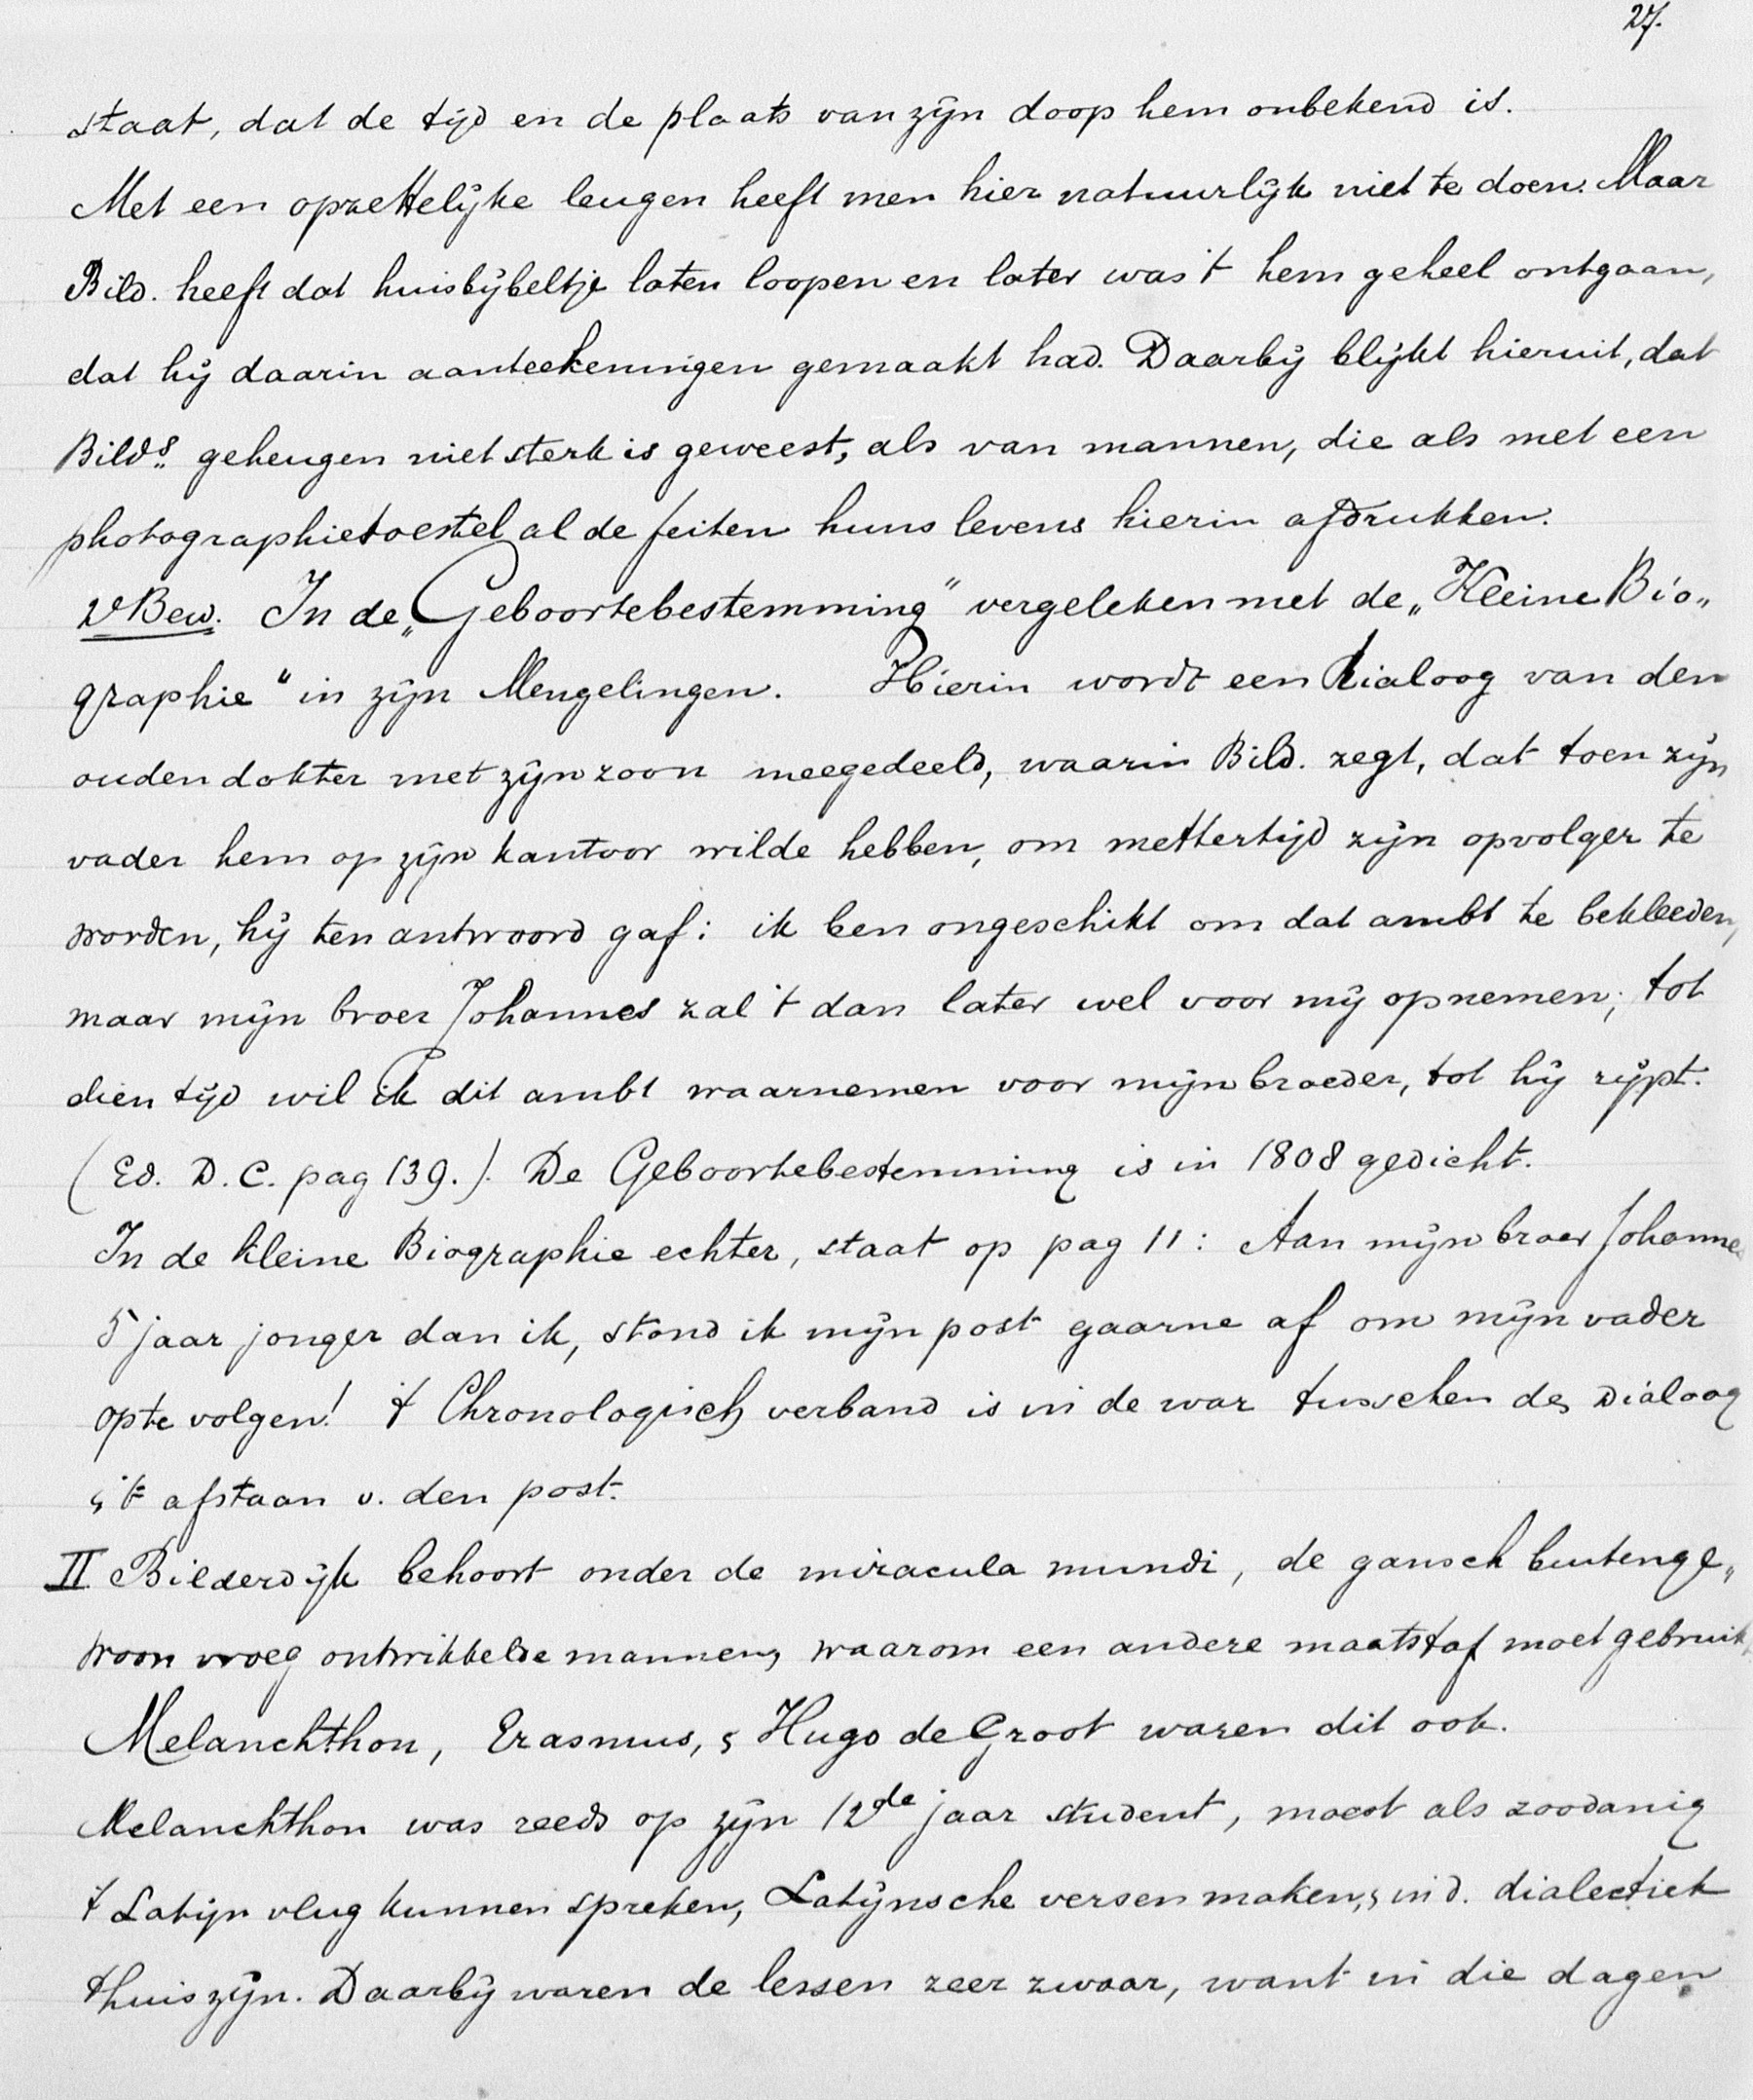 27.
staat, dat de tijd en de plaats van zijn doop hem onbekend is.
Met een opzettelijke leugen heeft men hier natuurlijk niet te doen. Maar
Bild. heeft dat huisbijbeltje laten loopen en later was 't hem geheel ontgaan,
dat hij daarin aanteekeningen gemaakt had. Daarbij blijkt hieruit, dat
Bilds geheugen niet sterk is geweest, als van mannen, die als met een
photographietoestel al de feiten huns levens hierin afdrukken.
2e Bew. In de „Geboortebestemming" vergeleken met de „Kleine Bio„
graphie" in zijn Mengelingen. Hierin wordt een dialoog van den
ouden dokter met zijn zoon meegedeeld, waarin Bild. zegt, dat toen zijn
vader hem op zijn kantoor wilde hebben, om mettertijd zijn opvolger te
worden, hij ten antwoord gaf: ik ben ongeschikt om dat ambt te bekleeden,
maar mijn broer Johannes zal 't dan later wel voor mij opnemen; tot
dien tijd wil ik dit ambt waarnemen voor mijn broeder, tot hij rijpt.
(Ed. D. C. pag 139.). De Geboortebestemming is in 1808 gedicht.
In de kleine Biographie echter, staat op pag 11: Aan mijn broer Johannes
5 jaar jonger dan ik, stond ik mijn post gaarne af om mijn vader
op te volgen! 't Chronologisch verband is in de war tusschen de dialoog
& 't afstaan v. den post.
II Bilderdijk behoort onder de miracula mundi, de gansch buitenge„
woon vroeg ontwikkelde mannen, waarom een andere maatstaf moet gebruikt.
Melanchthon, Erasmus, & Hugo de Groot waren dit ook.
Melanchthon was reeds op zijn 12de jaar student, moest als zoodanig
't Latijn vlug kunnen spreken, Latijnsche versen maken, & in d. dialectiek
thuis zijn. Daarbij waren de lessen zeer zwaar, want in die dagen